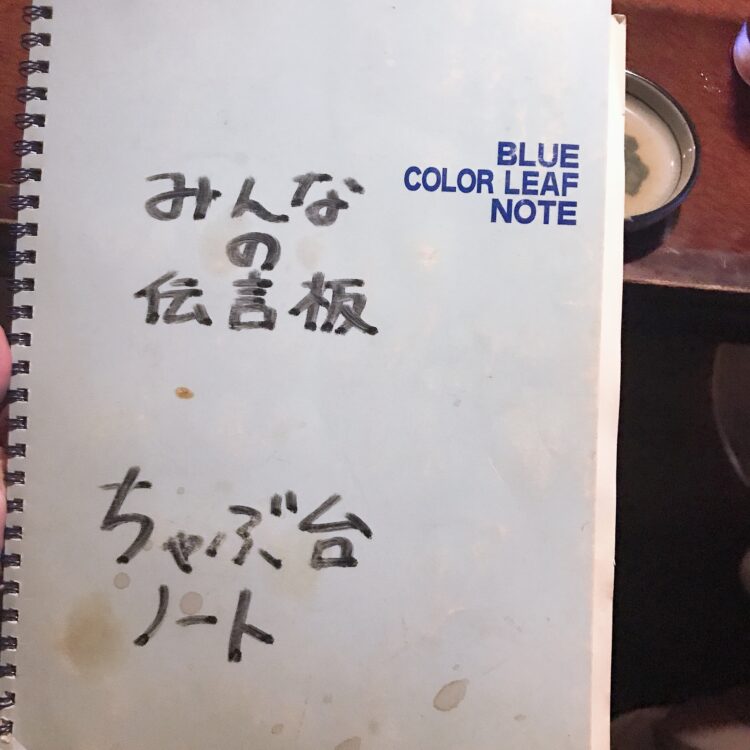 BLUE
COLOR LEAF
NOTE
みんな
の
伝言板
ちゃぶ台
ノート